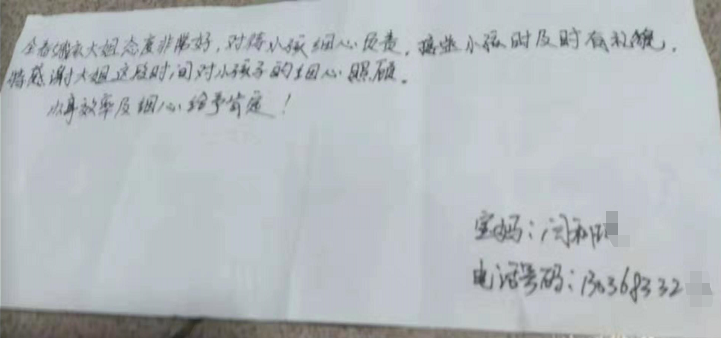 大姐态度非常好，对待小孩细心负责，接坐小孩时及时有礼貌，
特感谢大姐这段时间对小孩子的细心照顾。
办事效率及细心给予肯定！
宝妈：闫
电话号码：130368332